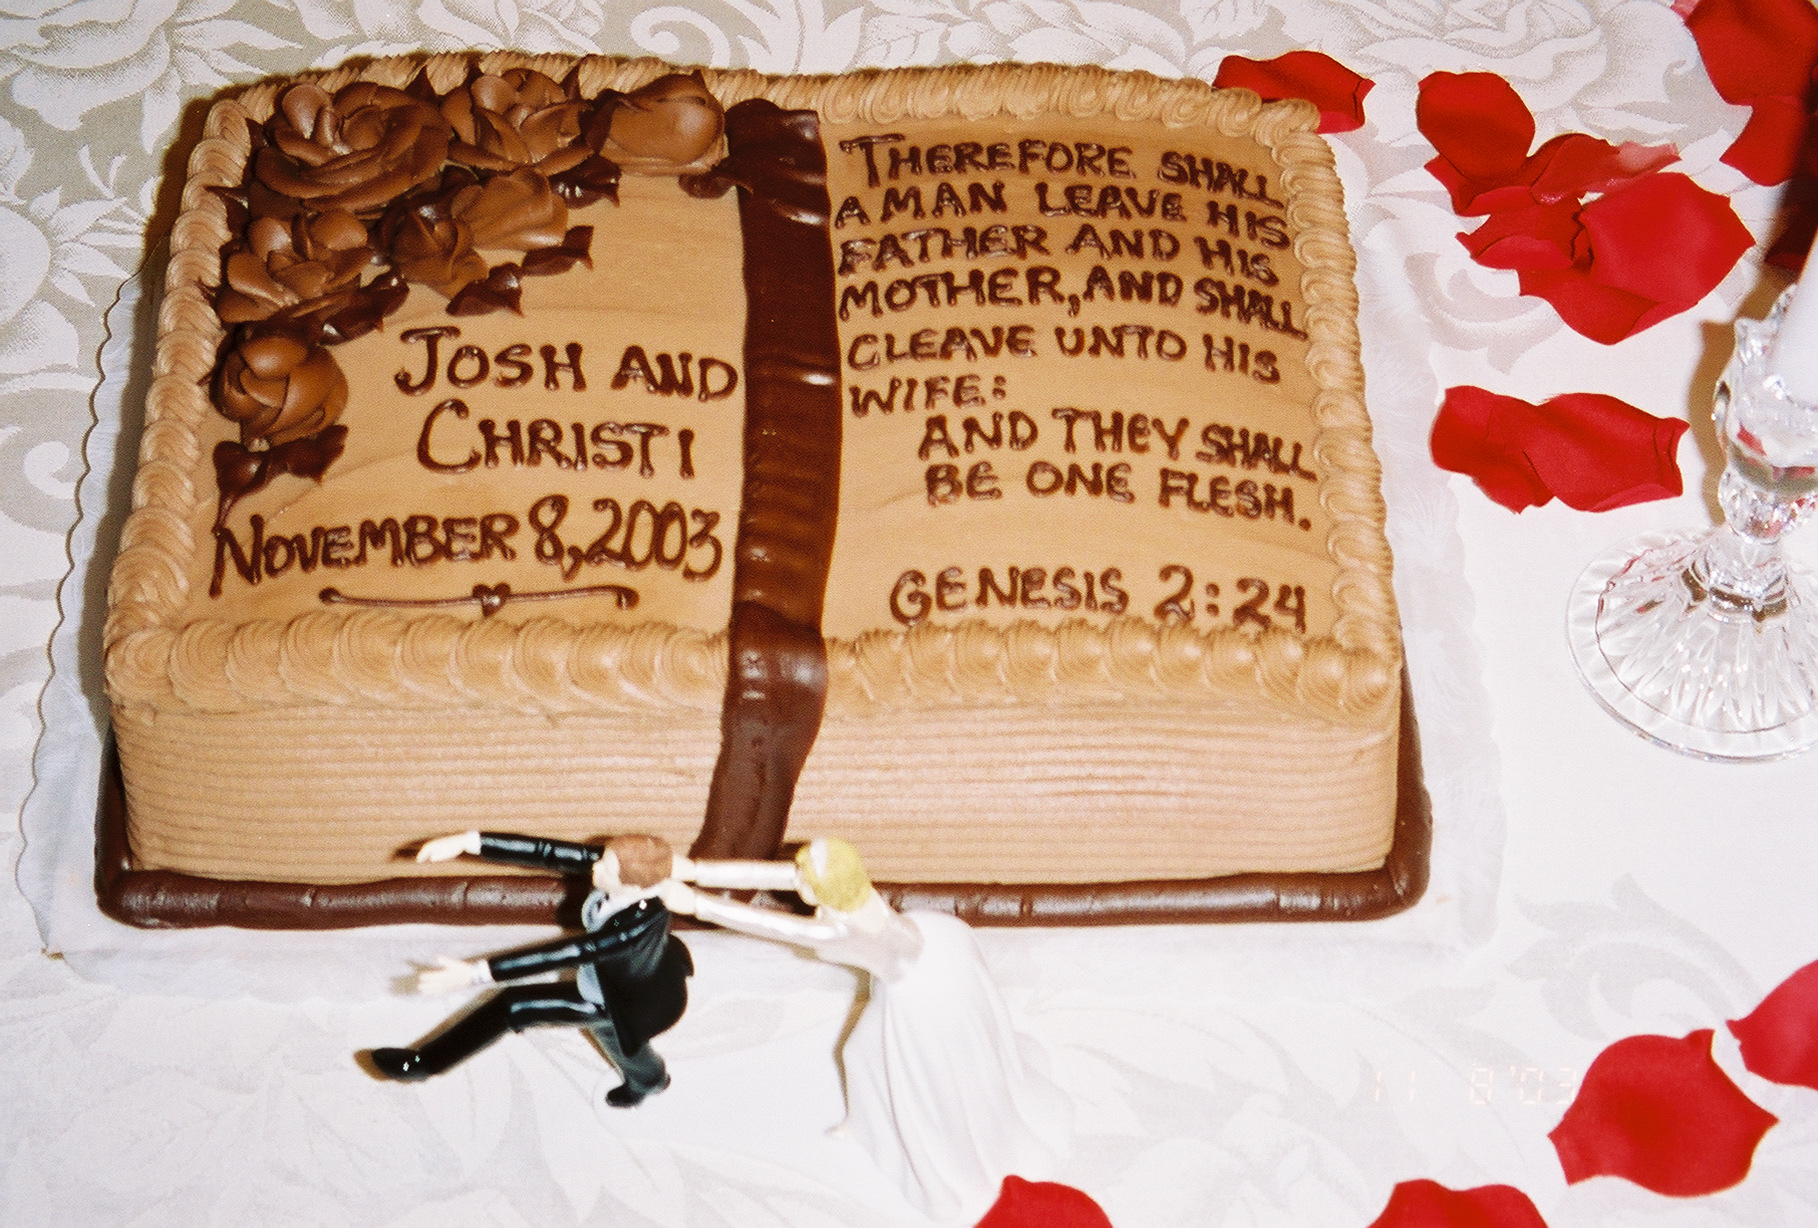 JOSH AND
CHRISTI
NOVEMBER 8, 2003
THEREFORE SHALL
A MAN LEAVE HIS
FATHER AND HIS
MOTHER, AND SHALL
CLEAVE UNTO HIS
WIFE:
AND THEY SHALL
BE ONE FLESH.
GENESIS 2:24
11 8 '03